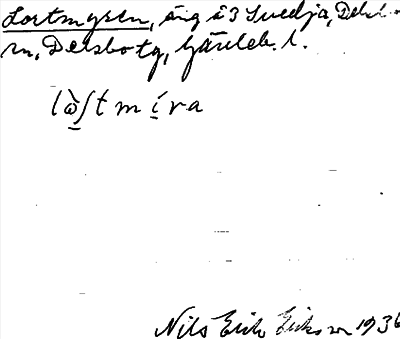 Lortmyren, äng å 3 Svedja, Delsbo
sn, Delsbo tg, Gävleb. l.
lὼʃtmíra
Nils Erik Eriksson 1936